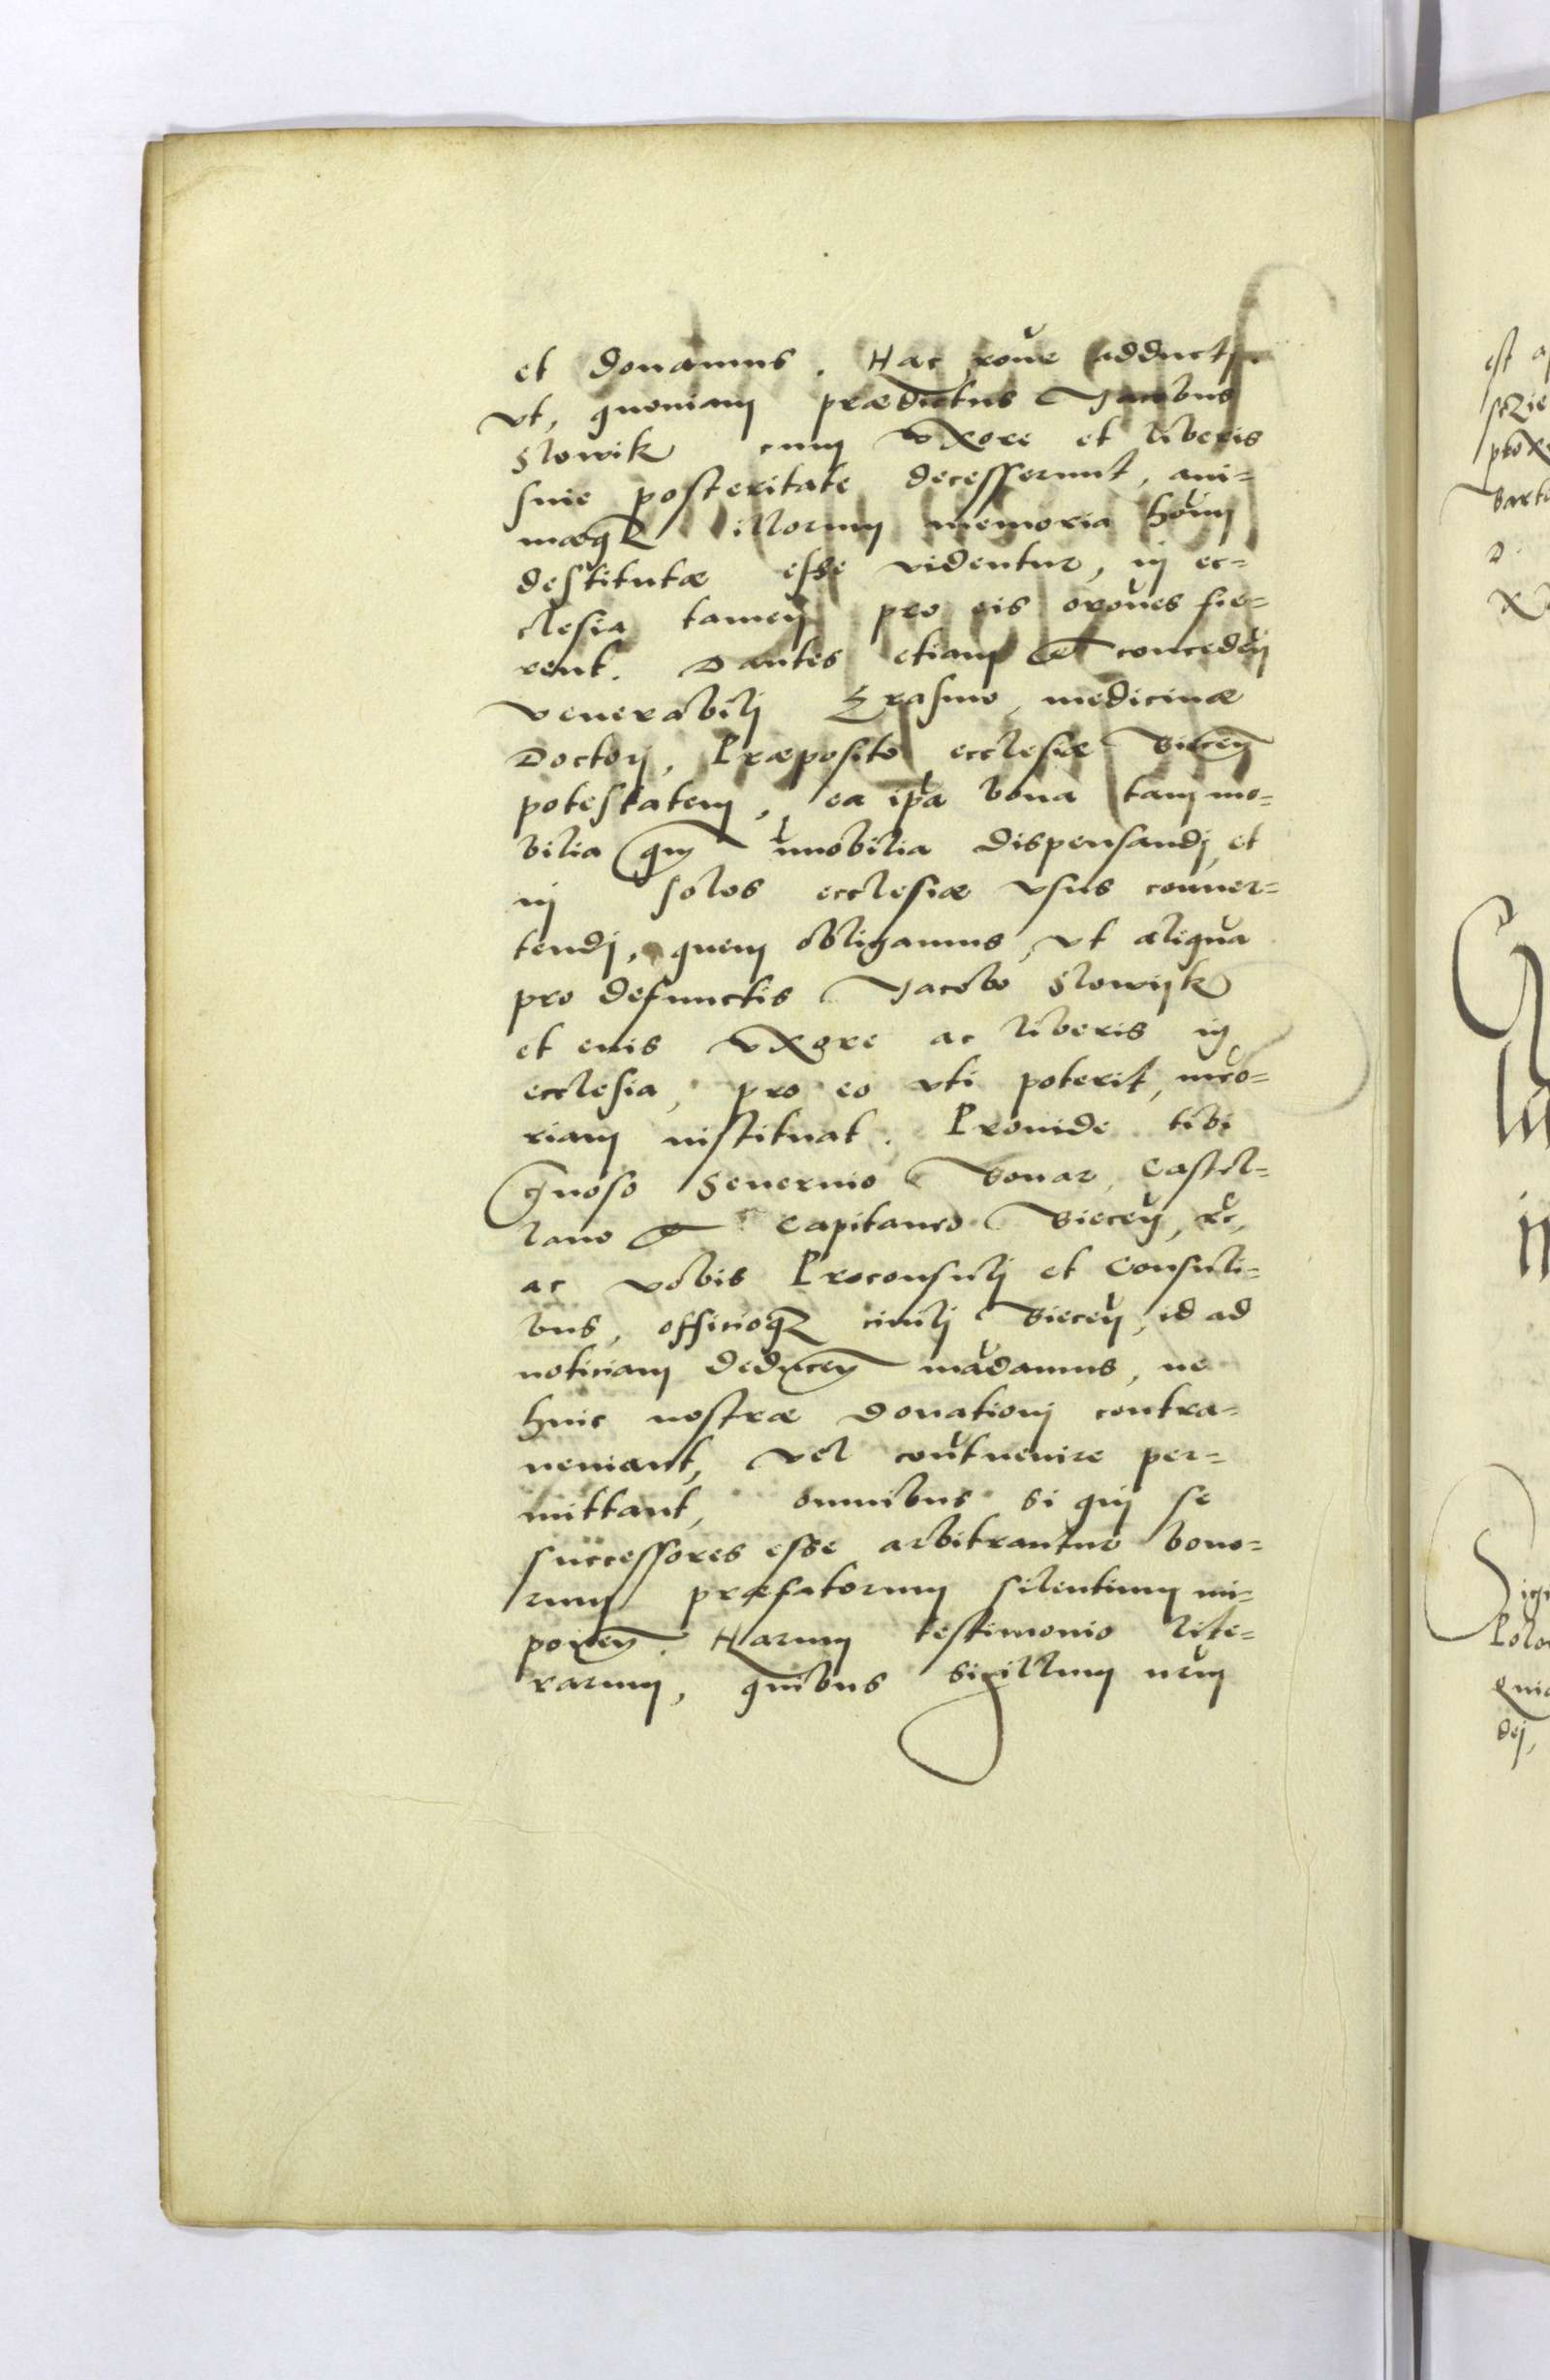 et donamus. Hac roñe adducti
vt, quoniam prædictus Jacobus
Slowik cum vxore et liberis
sine posteritate decesserunt, ani=
mæq₃ illorum memoria hoïm
destitutæ esse videntur, in ec=
clesia tamen pro eis oroñes fie=
rent. Dantes etiam et conceden̄
venerabilj Erasmo, medicinæ
Doctorj, Præposito ecclesiæ Biecen̄
potestatem, ea ip̃a bona tam mo=
bilia qm̃ im̃obilia dispensandj et
in solos ecclesiæ vsus conuer=
tendj, quem obligamus, vt aliqua
pro defunctis Jacobo Slowijk
et euis vxore ac liberis in
ecclesia, pro eo vti poterit, mẽo=
riam instituat. Proinde tibi
Gñoso Seuerino Bonar, Castel=
lano et Capitaneo Biecen̄, ꝛc̃,
ac vobis Proconsulj et Consuli=
bus, officioq₃ ciuilj Biecen̄, id ad
noticiam deducen̄ mãdamus, ne
huic nostræ donationj contra=
ueniant, vel cont̃uenire per=
mittant, omnibus si qui se
successores esse arbitrantur bono=
rum præfatorum silentium im=
ponen̄. Harum testimonio lite=
rarum, quibus sigillum nr̃m